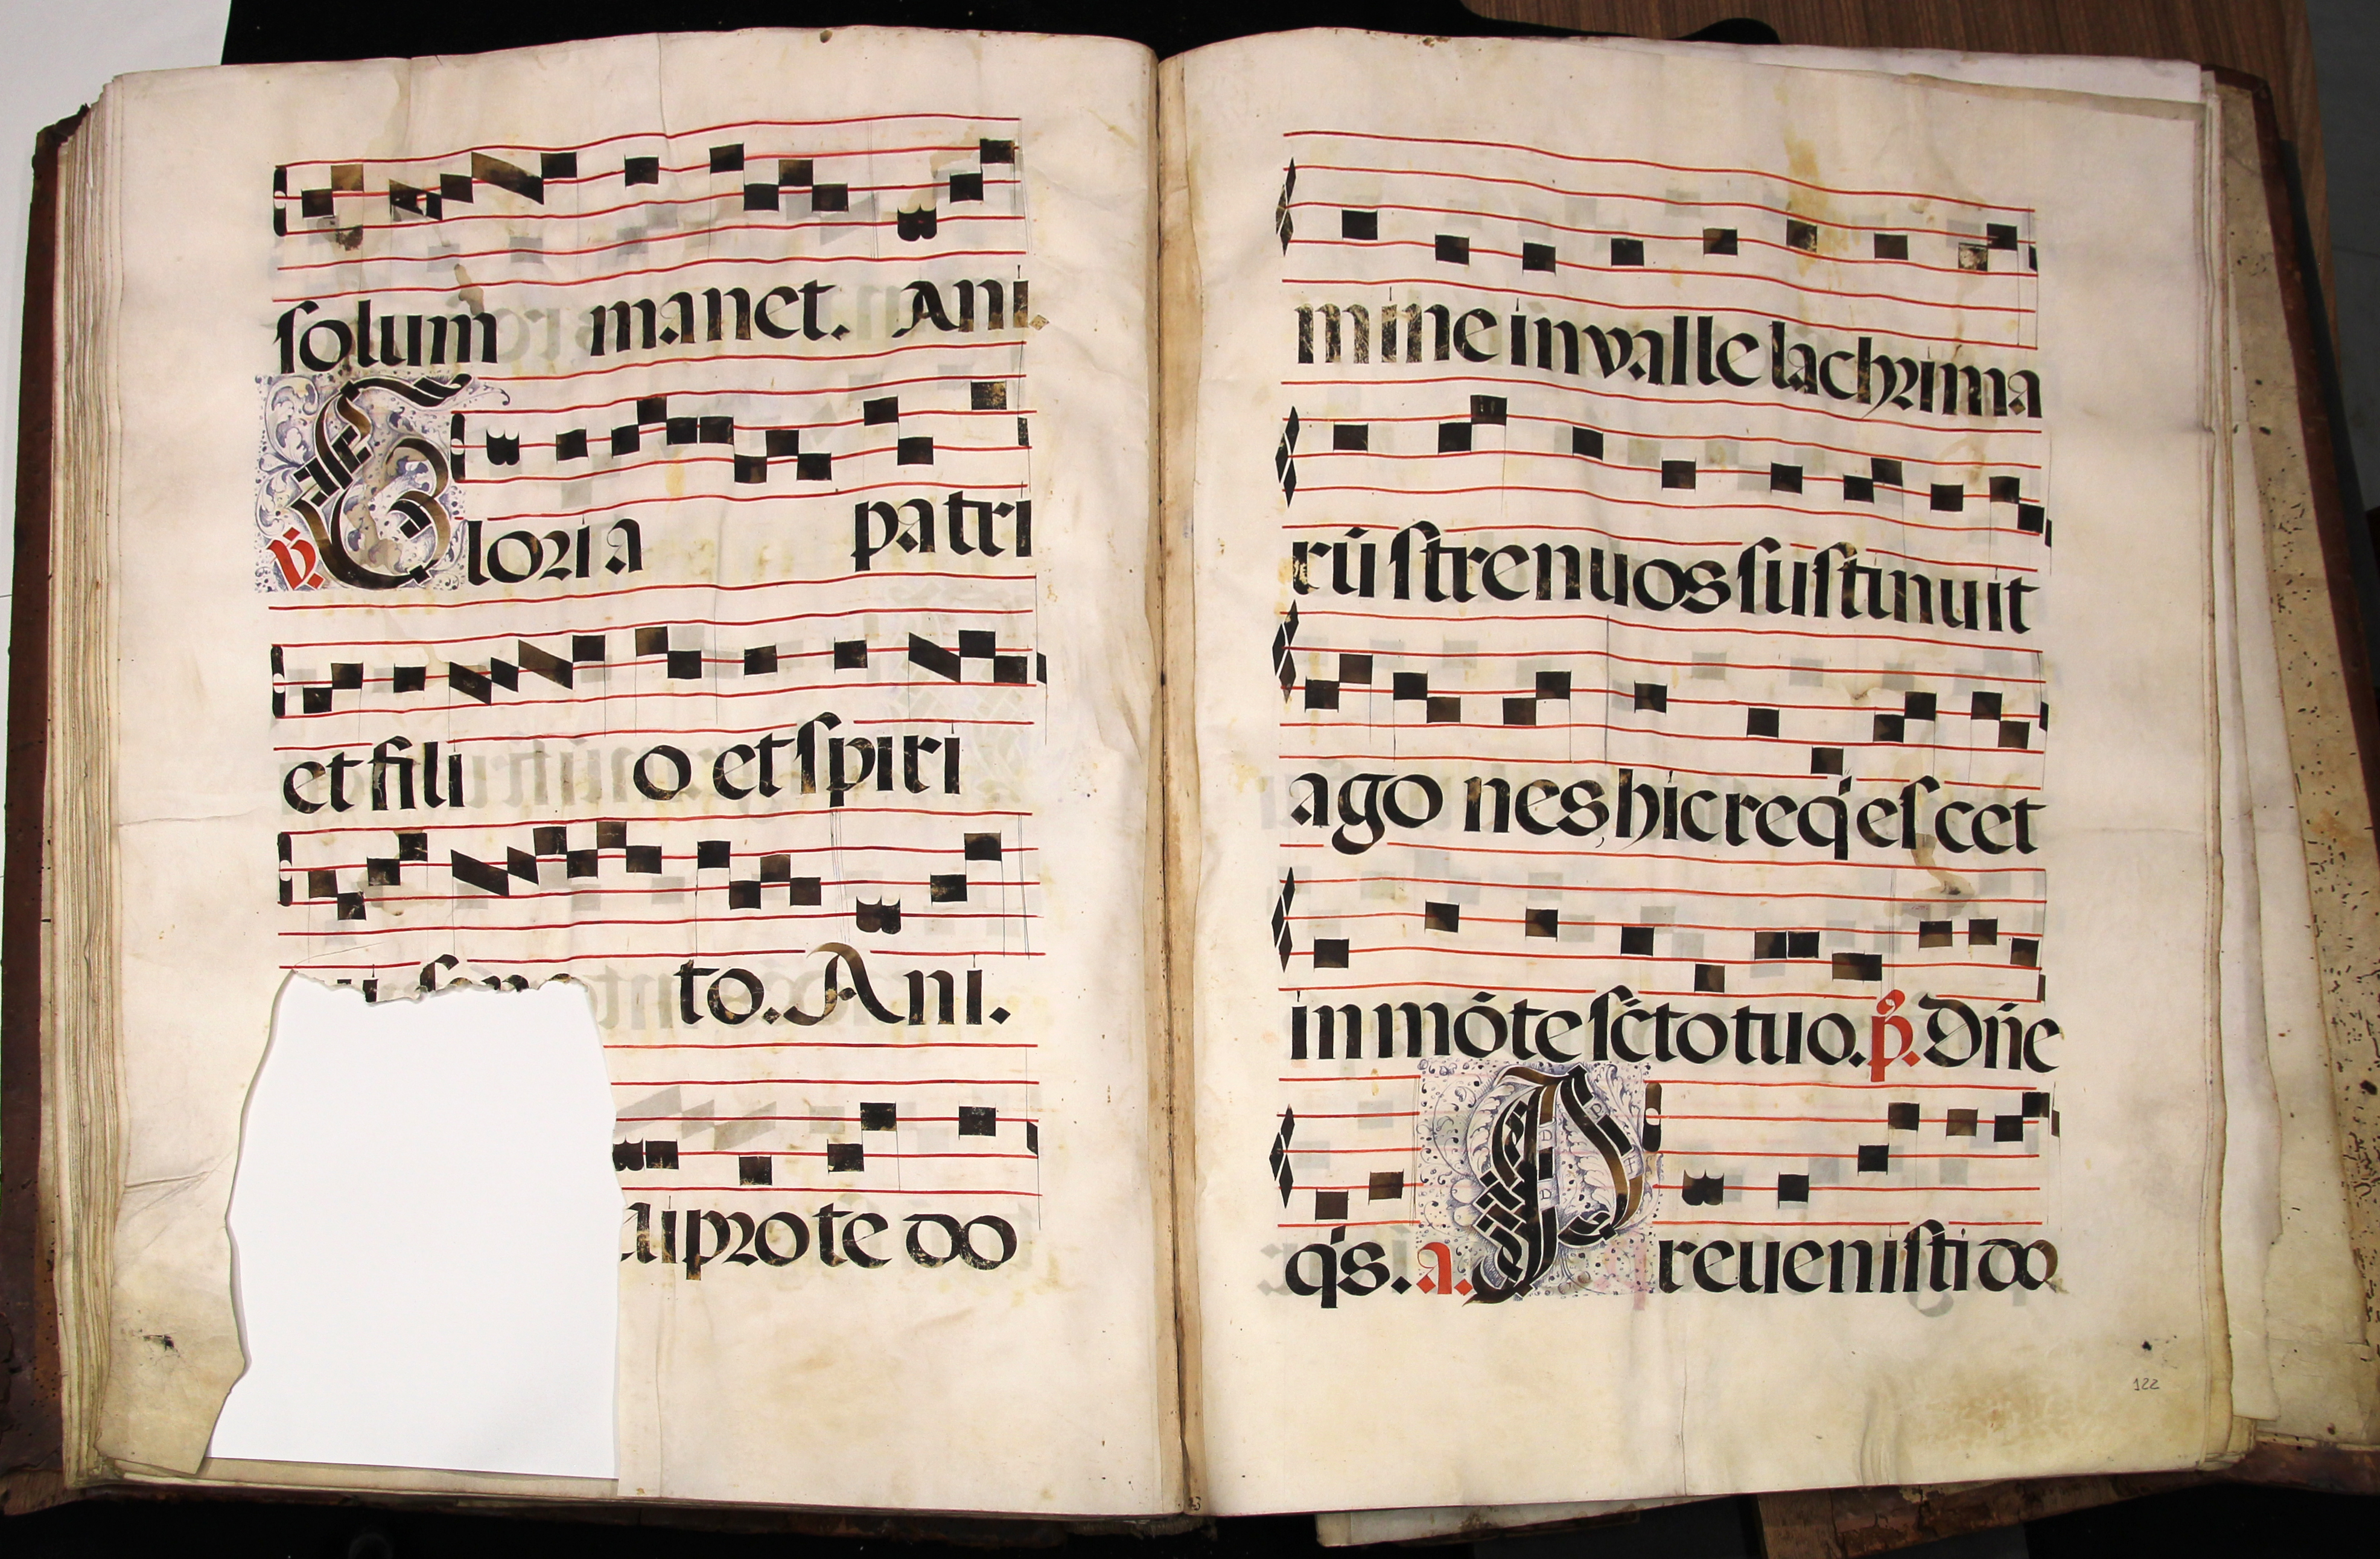 solum manet. Ani.
v. Gloria patri
et fili o et spiri
to. Ani.
ui pro te do
mine in valle lachrima
rū strenuos sustinuit
ago nes, hic req'escet
in mōte sc̄to tuo. p̄. Dn̄e
q's. a. Preuenisti do
122